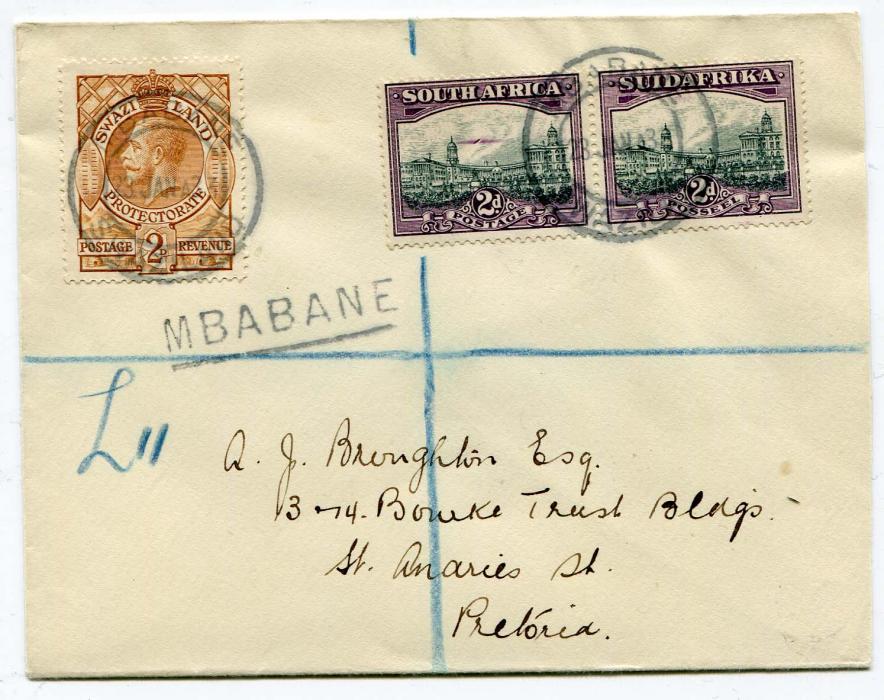 SWAZI LAND
PROTECTORATE
POSTAGE 2D REVENUE
SOUTH AFRICA
2d
POSTAGE
SUIDAFRIKA
2d
POSSEEL
MBABANE
L11
A. J. Broughton Esq.
3-74. Bourke Trust Bldgs.
St. Anaries St.
Pretoria.